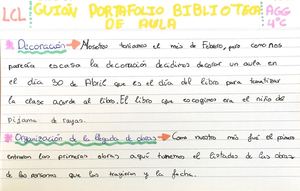 LCL GUIÓN PORTAFOLIO BIBLIOTECA AGG
DE AULA 4ºC
* Decoración → Nosotros teníamos el mes de Febrero, pero como nos
parecía escasa la decoración decidimos decorar un aula en
el día 30 de Abril que es el día del libro para tematizar
la clase acorde al libro. El libro que escogimos era el niño del
Pijama de rayas.
* Organización de la llegada de obras → Como nuestro mes fué el primero
entraron las primeras obras aquí tenemos el listado de las obras
de las personas que las trajeron y la fecha.